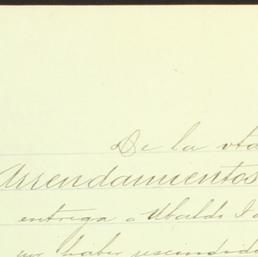 De la vta
Arrendamientos
entrega a Ubaldo
por haber rescindido